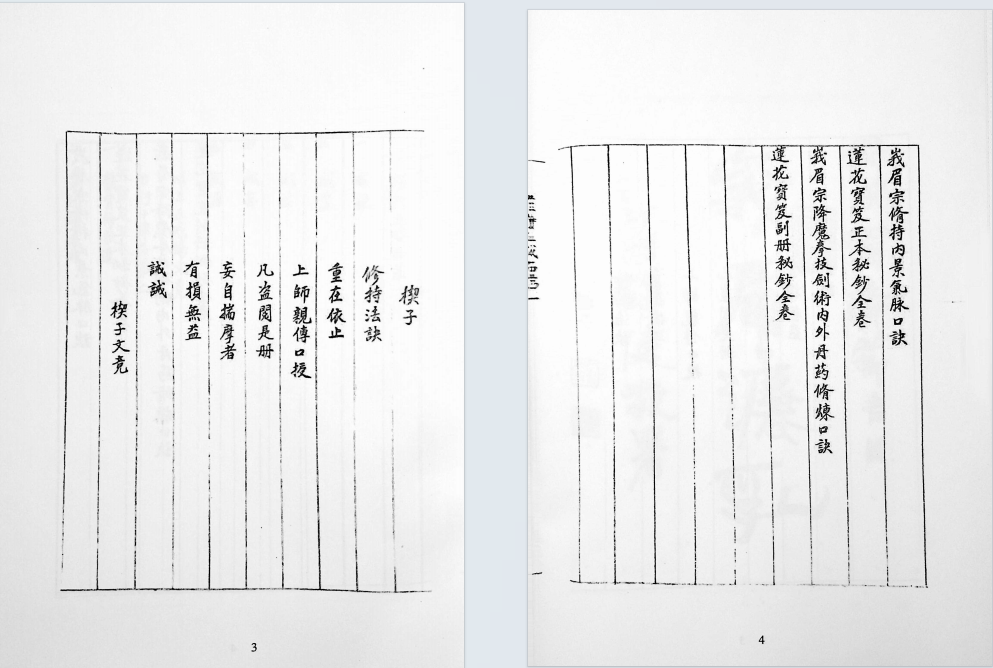 楔子
修持法訣
重在依止
上師親傳口授
凡盜閱是册
妄自揣摩者
有損無益
誡誡
楔子文竟
3
峩眉宗脩持内景氣脉口訣
蓮花寶笈正本秘鈔全卷
峩眉宗降魔拳技劍術内外丹药脩煉口訣
蓮花寶笈副册秘鈔全卷
4